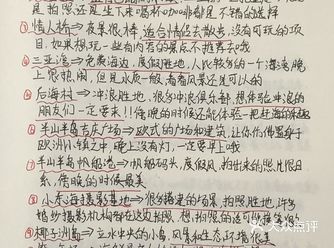 是拍照还是坐下来喝杯咖啡都是不错的选择
情人桥→夜景很棒,适合情侣去散步,没有可玩的项
目,如果想玩一些有内容的景点不推荐哦
三亚湾→免费海边,度假胜地,人比较多的一个海湾,晚
上很热闹,但是水质一般,看看风景还是可以的
后海村→冲浪胜地,很多冲浪俱乐部,想体验冲浪的
朋友们一定要来!!傍晚的时候还能体验一把赶海的乐趣
半山半岛吉庆广场→欧式的广场和建筑,让你仿佛置身于
欧洲小镇之中,晚上没有灯,一定要早上哦
半山半岛帆船港→帆船码头,度假风,拍出来的照片很日
系,傍晚的时候最美
小东海摄影基地→很多搭建的场景,拍照胜地,许多
婚纱摄影机构都在这边拍照,想
椰子洲岛→立水中央的小岛,风景和生态环境很美
大众点评